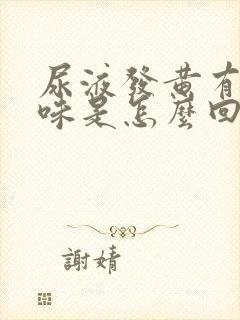 尿液發黄有
味是怎麼回
謝婧